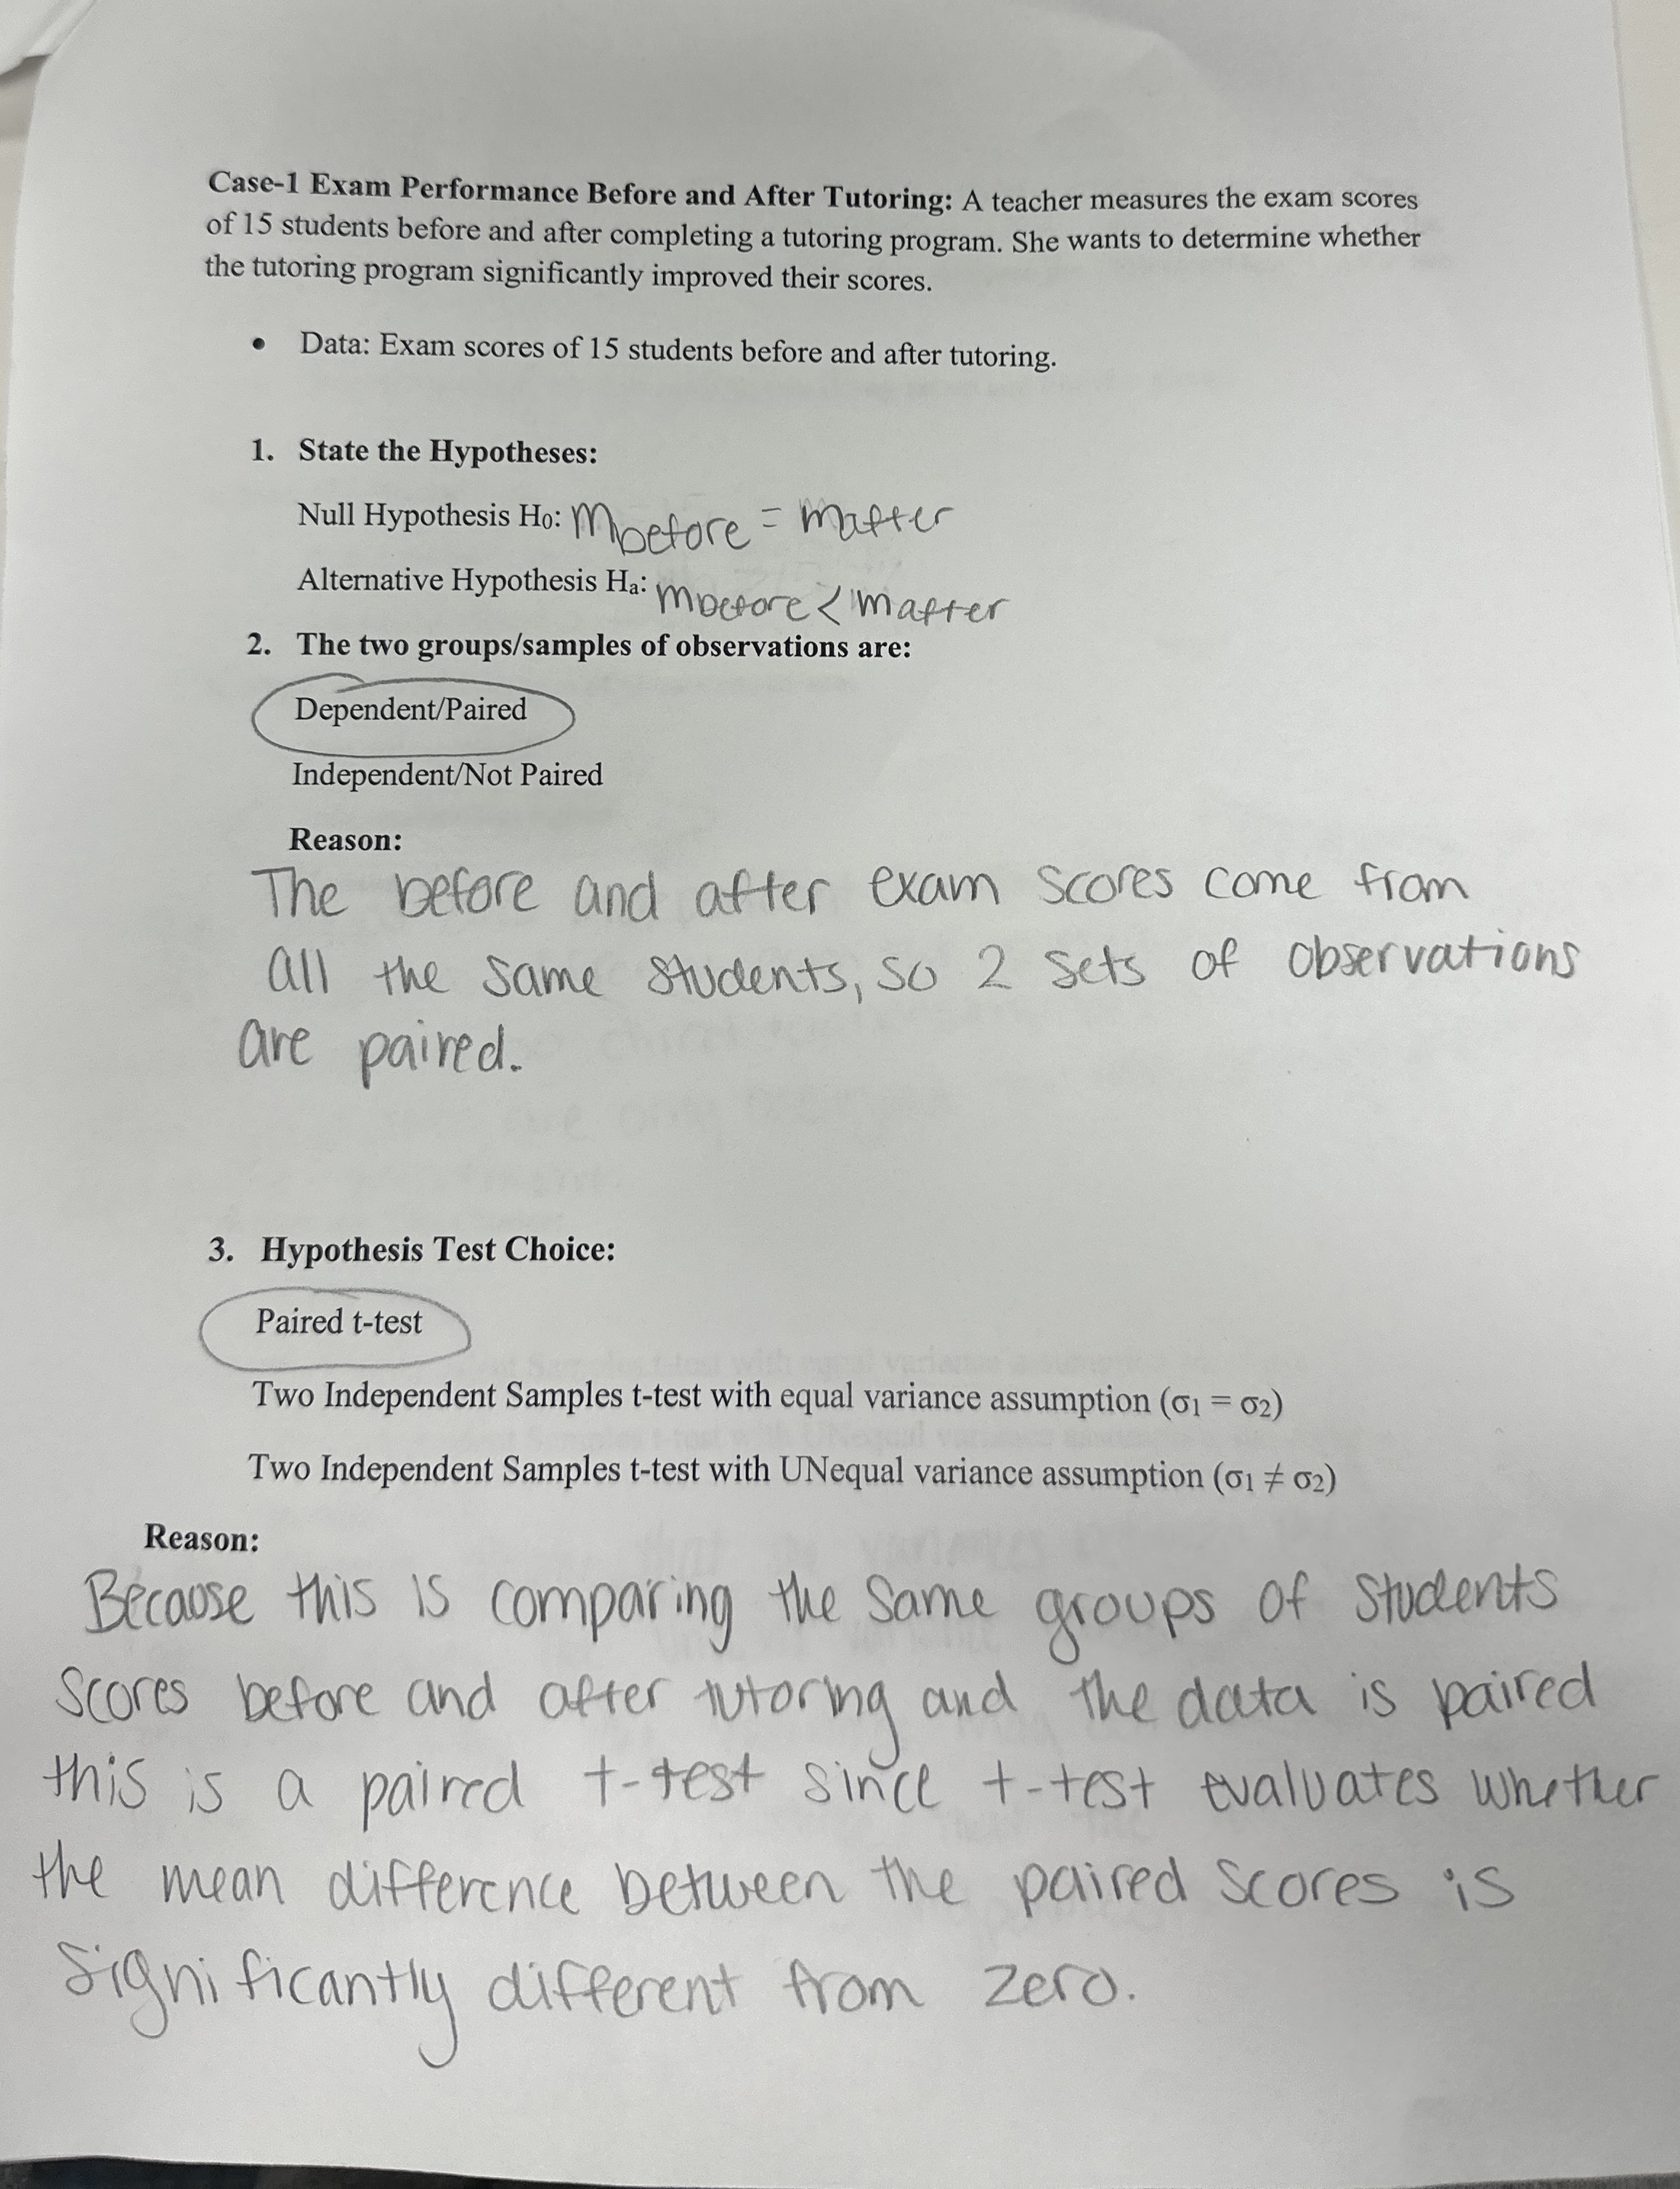 Case-1 Exam Performance Before and After Tutoring: A teacher measures the exam scores
of 15 students before and after completing a tutoring program. She wants to determine whether
the tutoring program significantly improved their scores.
• Data: Exam scores of 15 students before and after tutoring.
1. State the Hypotheses:
Null Hypothesis H0: Mbefore = Mafter
Alternative Hypothesis Ha: Mbefore < Mafter
2. The two groups/samples of observations are:
Dependent/Paired
Independent/Not Paired
Reason:
The before and after exam scores come from
all the same students, so 2 sets of observations
are paired.
3. Hypothesis Test Choice:
Paired t-test
Two Independent Samples t-test with equal variance assumption (σ1 = σ2)
Two Independent Samples t-test with UNequal variance assumption (σ1 ≠ σ2)
Reason:
Because this is comparing the same groups of students
scores before and after tutoring and the data is paired
this is a paired t-test since t-test evaluates whether
the mean difference between the paired scores is
significantly different from zero.